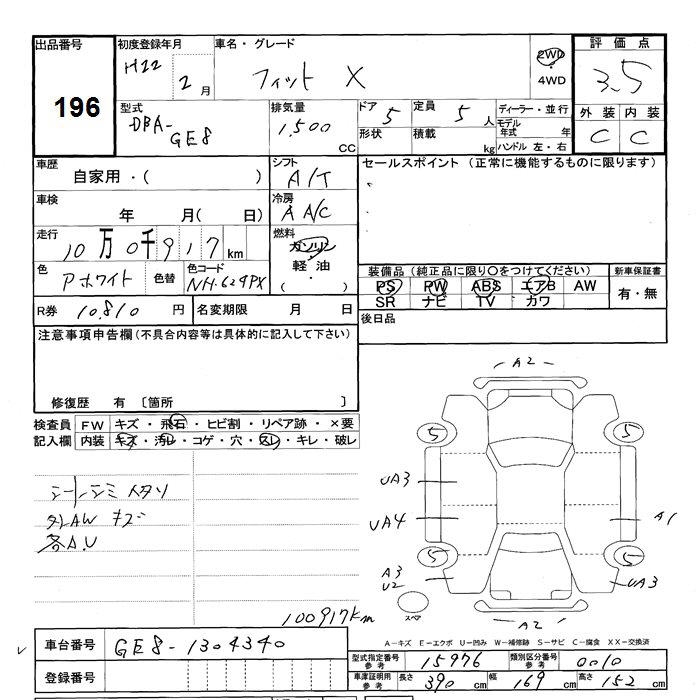 出品番号
196
初度登録年月
H22 2月
車名・グレード
フィット X
2WD
4WD
評価点
3.5
外装 内装
C C
型式
DBA-
GE8
排気量
1,500
CC
ドア 5
形状
定員 5人
積載 kg
ディーラー・並行
モデル年式 年
ハンドル 左・右
車歴
自家用・( )
シフト
A/T
セールスポイント (正常に機能するものに限ります)
車検
年 月( 日)
冷房
A A/C
走行
10万0千917km
燃料
ガソリン
軽油
( )
色
Pホワイト
色替
色コード
NH-624PX
装備品 (純正品に限り○をつけてください)
PS PW ABS エアB AW
SR ナビ TV カワ
新車保証書
有・無
R券 10,810 円
名変期限 月 日
後日品
注意事項申告欄(不具合内容等は具体的に記入して下さい)
修復歴 有 〔箇所 〕
検査員
記入欄
FW キズ・飛石・ヒビ割・リペア跡・×要
内装 キズ・汚レ・コゲ・穴・スレ・キレ・破レ
シートシミ
外AW キズ
各A.U
100917km
A2
5
5
UA3
UA4
A1
5
5
A3
U2
UA3
スペア
A2
A-キズ E-エクボ U-凹み W-補修跡 S-サビ C-腐食 XX-交換済
車台番号 GE8-1304340
登録番号
型式指定番号 参考 15976
類別区分番号 参考 0010
車庫証明用 参考
長さ 390 cm
幅 169 cm
高さ 152 cm